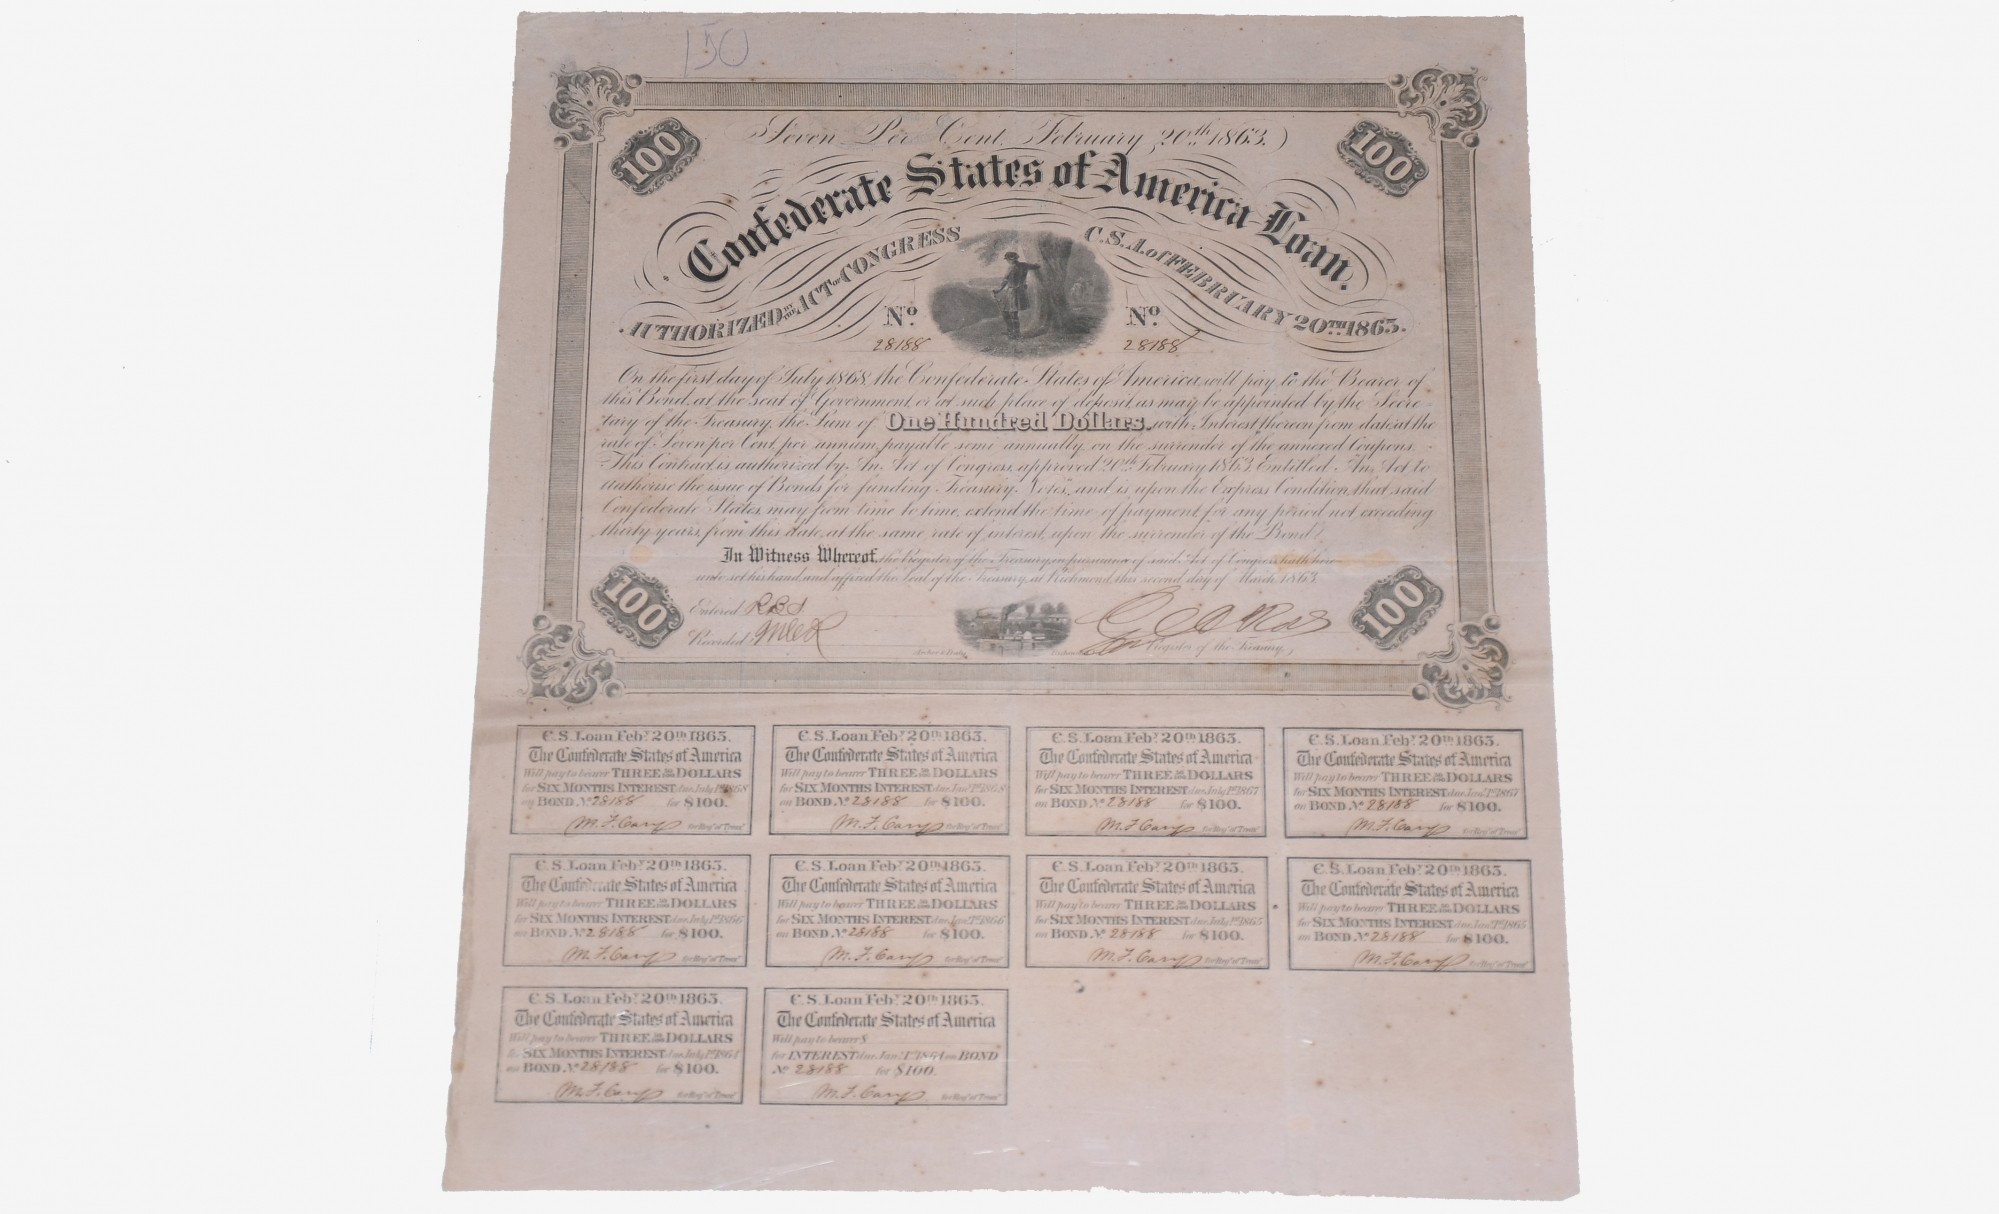 150
100 100
Seven Per Cent. February, 20th 1863.)
Confederate States of America Loan.
AUTHORIZED BY THE ACT OF CONGRESS C.S.A. of FEBRUARY 20TH 1863.
No. No.
28188 28188
On the first day of July 1868, the Confederate States of America, will pay to the Bearer of
this Bond, at the seat of Government, or at such place of deposit, as may be appointed by the Secre-
tary of the Treasury, the Sum of One Hundred Dollars, with Interest thereon from date, at the
rate of Seven per Cent, per annum, payable semi annually, on the surrender of the annexed Coupons.
This Contract, is authorized by An Act of Congress, approved 20th February 1863, Entitled An Act to
authorise the issue of Bonds for funding Treasury Notes, and is upon the Express Condition, that said
Confederate States, may from time to time, extend the time of payment, for any period not exceeding
thirty years, from this date, at the same rate of interest, upon the surrender of the Bond.
In Witness Whereof, the Register of the Treasury, in pursuance of said Act of Congress, hath here-
unto set his hand, and affixed the Seal of the Treasury, at Richmond, this second day of March, 1863
100 100
Entered
Recorded
Register of the Treasury,
C.S. Loan Feby 20th 1863.
The Confederate States of America
Will pay to bearer THREE 50/100 DOLLARS
for SIX MONTHS INTEREST due July 1st 1868
on BOND No 28188 for $100.
for Regr of Treasy
C.S. Loan Feby 20th 1863.
The Confederate States of America
Will pay to bearer THREE 50/100 DOLLARS
for SIX MONTHS INTEREST due Jany 1st 1868
on BOND No 28188 for $100.
for Regr of Treasy
C.S. Loan Feby 20th 1863.
The Confederate States of America
Will pay to bearer THREE 50/100 DOLLARS
for SIX MONTHS INTEREST due July 1st 1867
on BOND No 28188 for $100.
for Regr of Treasy
C.S. Loan Feby 20th 1863.
The Confederate States of America
Will pay to bearer THREE 50/100 DOLLARS
for SIX MONTHS INTEREST due Jany 1st 1867
on BOND No 28188 for $100.
for Regr of Treasy
C.S. Loan Feby 20th 1863.
The Confederate States of America
Will pay to bearer THREE 50/100 DOLLARS
for SIX MONTHS INTEREST due July 1st 1866
on BOND No 28188 for $100.
for Regr of Treasy
C.S. Loan Feby 20th 1863.
The Confederate States of America
Will pay to bearer THREE 50/100 DOLLARS
for SIX MONTHS INTEREST due Jany 1st 1866
on BOND No 28188 for $100.
for Regr of Treasy
C.S. Loan Feby 20th 1863.
The Confederate States of America
Will pay to bearer THREE 50/100 DOLLARS
for SIX MONTHS INTEREST due July 1st 1865
on BOND No 28188 for $100.
for Regr of Treasy
C.S. Loan Feby 20th 1863.
The Confederate States of America
Will pay to bearer THREE 50/100 DOLLARS
for SIX MONTHS INTEREST due Jany 1st 1865
on BOND No 28188 for $100.
for Regr of Treasy
C.S. Loan Feby 20th 1863.
The Confederate States of America
Will pay to bearer THREE 50/100 DOLLARS
for SIX MONTHS INTEREST due July 1st 1864
on BOND No 28188 for $100.
for Regr of Treasy
C.S. Loan Feby 20th 1863.
The Confederate States of America
Will pay to bearer $
for INTEREST due Jany 1st 1864 on BOND
No 28188 for $100.
for Regr of Treasy